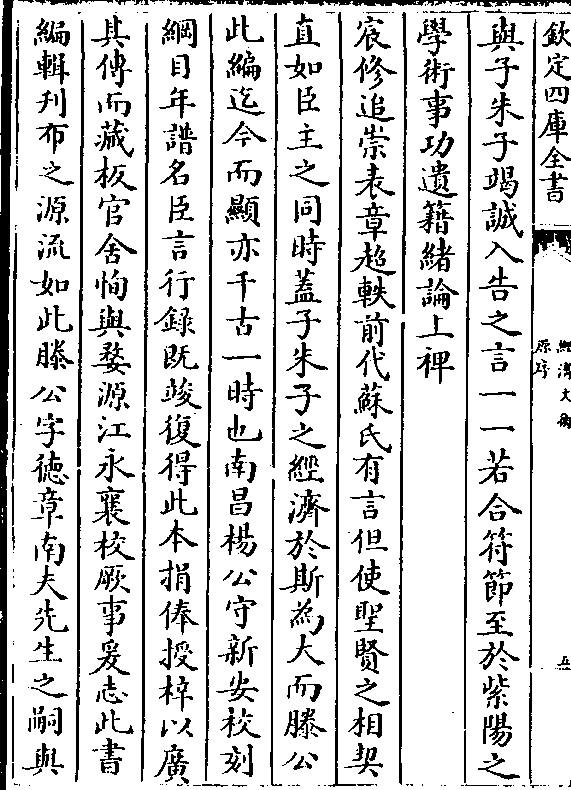 欽定四庫全書
經濟文衡
原序
五
與子朱子竭誠入告之言一一若合符節至於紫陽之
學術事功遺籍緒論上禆
宸修追崇表章超軼前代蘇氏有言但使聖賢之相契
直如臣主之同時蓋子朱子之經濟於斯為大而滕公
此編迄今而顯亦千古一時也南昌楊公守新安校刻
綱目年譜名臣言行錄既竣復得此本捐俸授梓以廣
其傳而藏板官舍恂與婺源江永襄校厥事爰志此書
編輯刋布之源流如此滕公字徳章南夫先生之嗣與